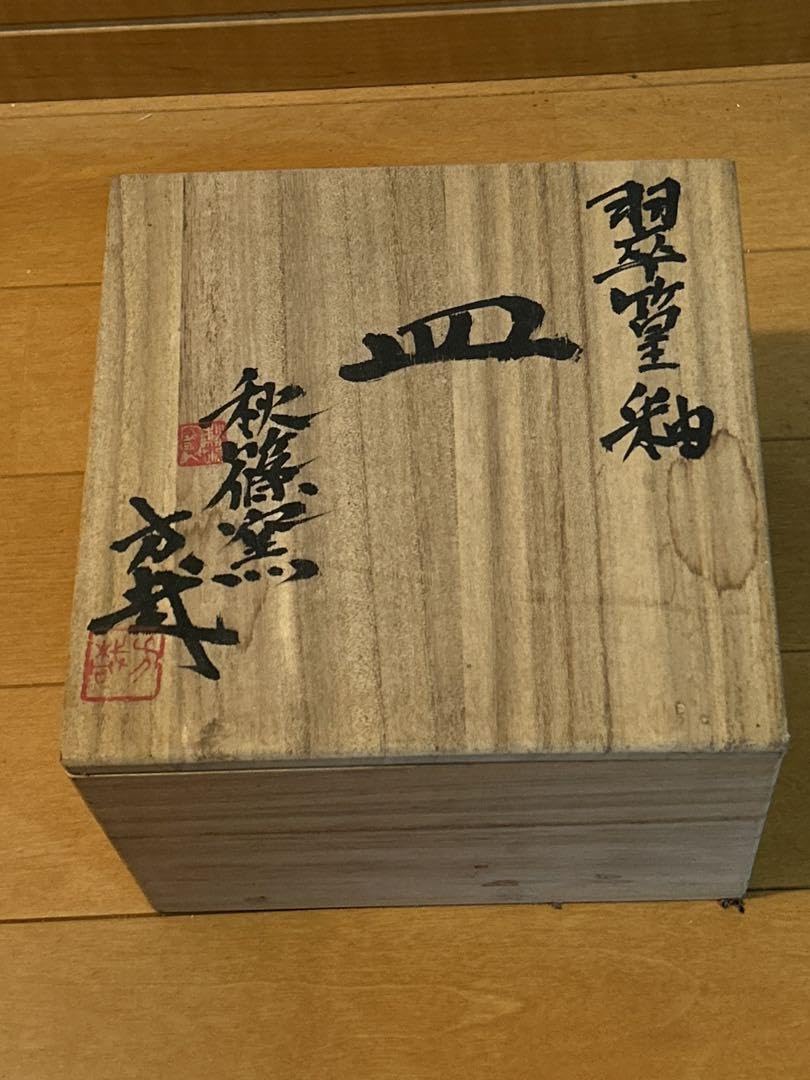 翠篁釉
皿
秋篠窯
方哉